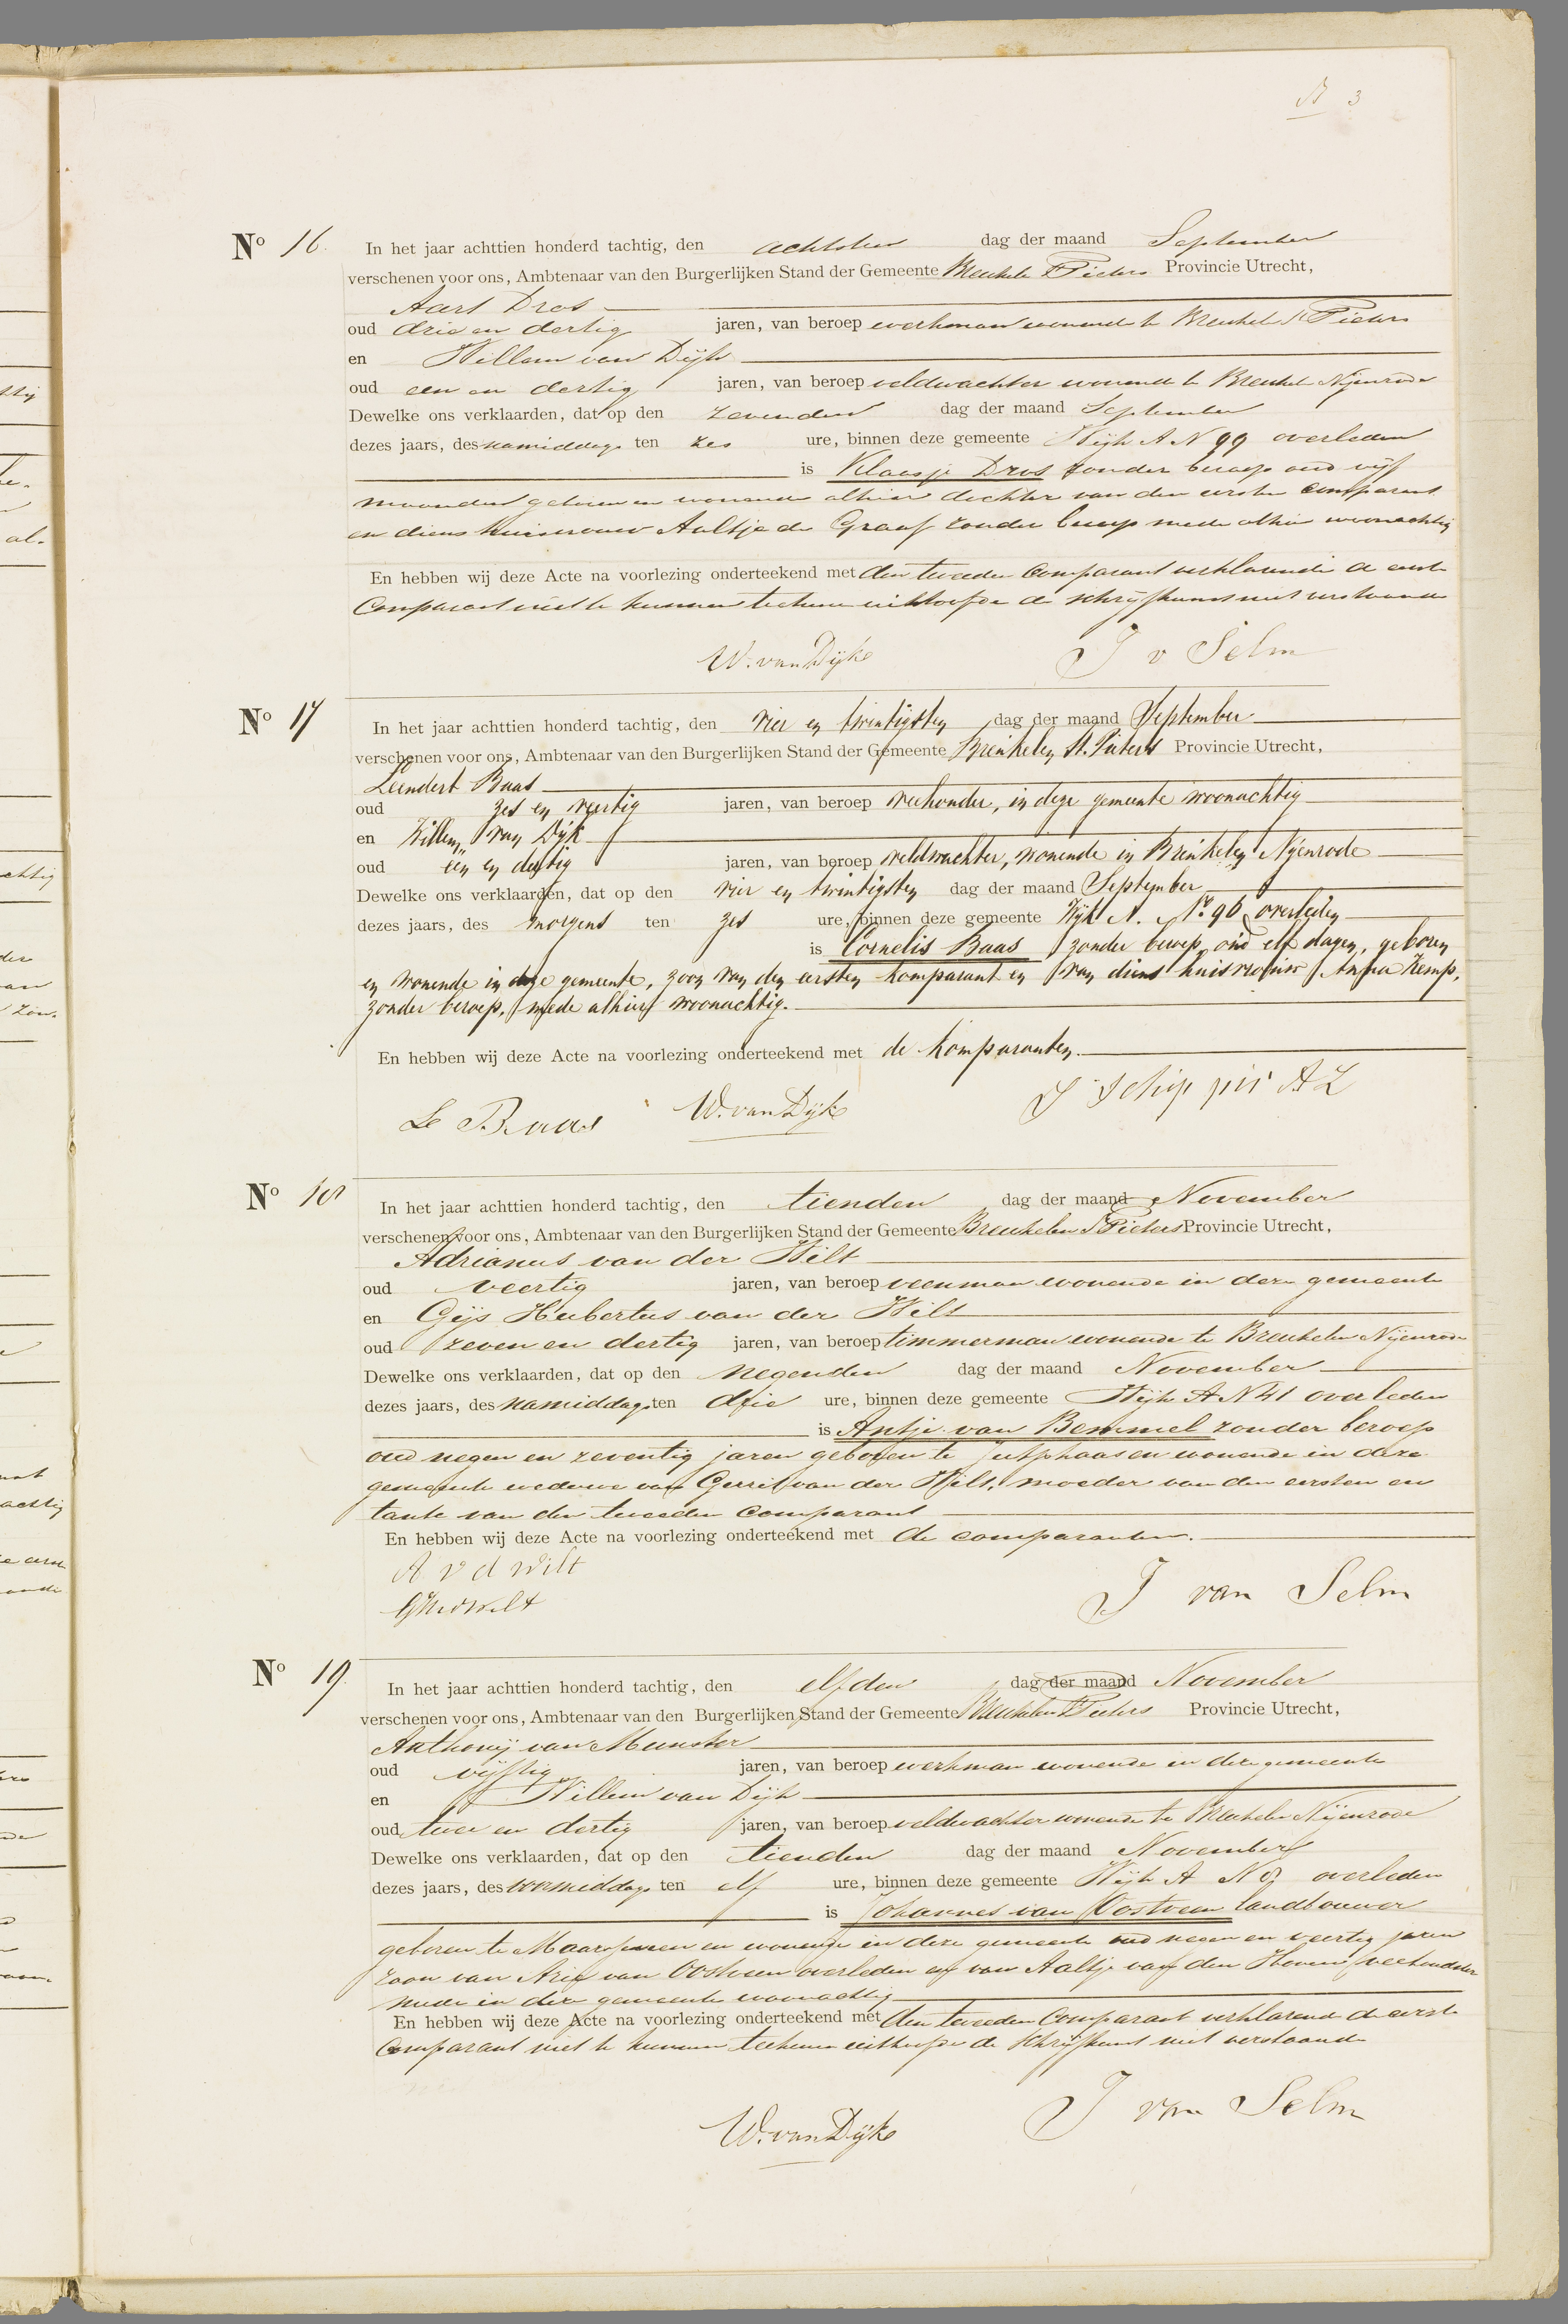 3
No 16 In het jaar achttien honderd tachtig, den achtsten dag der maand September
verschenen voor ons, Ambtenaar van den Burgerlijken Stand der Gemeente Breukelen St Pieters Provincie Utrecht,
Aart Dros
oud drie en dertig jaren, van beroep werkman wonende te Breukelen St Pieters
en Willem van Dijk
oud een en dertig jaren, van beroep veldwachter wonende te Breukelen Nijenrode
Dewelke ons verklaarden, dat op den zevenden dag der maand September
dezes jaars, des namiddags ten zes ure, binnen deze gemeente Wijk A N 99 overleden
is Klaasje Dros zonder beroep oud vijf
maanden geboren en wonende alhier dochter van den eersten comparant
en diens huisvrouw Aaltje de Graaf zonder beroep mede alhier woonachtig
En hebben wij deze Acte na voorlezing onderteekend met den tweeden Comparant verklarende de eerste
Comparant niet te kunnen teekenen uithoofde de schrijfkunst niet verstaande
W. van Dijk J v Selm
No 17 In het jaar achttien honderd tachtig, den vier en twintigsten dag der maand September
verschenen voor ons, Ambtenaar van den Burgerlijken Stand der Gemeente Breukelen St. Pieters Provincie Utrecht,
Leendert Baas
oud zes en veertig jaren, van beroep veehouder, in deze gemeente woonachtig
en Willem van Dijk
oud een en dertig jaren, van beroep veldwachter, wonende in Breukelen Nijenrode
Dewelke ons verklaarden, dat op den vier en twintigsten dag der maand September
dezes jaars, des morgens ten zes ure, binnen deze gemeente Wijk A. No. 96 overleden
is Cornelis Baas zonder beroep, oud elf dagen, geboren
en wonende in deze gemeente, zoon van den eersten komparant en van diens huisvrouw Anna Kemp,
zonder beroep, mede alhier woonachtig.
En hebben wij deze Acte na voorlezing onderteekend met de komparanten.
Le Baas W. van Dijk J Schipper AZ
No 18 In het jaar achttien honderd tachtig, den tienden dag der maand November
verschenen voor ons, Ambtenaar van den Burgerlijken Stand der Gemeente Breukelen St Pieters Provincie Utrecht,
Adrianus van der Wilt
oud veertig jaren, van beroep veenman wonende in deze gemeente
en Gijs Hubertus van der Wilt
oud zeven en dertig jaren, van beroep timmerman wonende te Breukelen Nijenrode
Dewelke ons verklaarden, dat op den negenden dag der maand November
dezes jaars, des namiddags ten drie ure, binnen deze gemeente Wijk A N 41 overleden
is Antje van Bemmel zonder beroep
oud negen en zeventig jaren geboren te Jutphaas en wonende in deze
gemeente weduwe van Gerrit van der Wilt, moeder van den eersten en
tante van den tweeden Comparant
En hebben wij deze Acte na voorlezing onderteekend met de comparanten.
A v d Wilt
GHvdWilt J van Selm
No 19 In het jaar achttien honderd tachtig, den elfden dag der maand November
verschenen voor ons, Ambtenaar van den Burgerlijken Stand der Gemeente Breukelen St Pieters Provincie Utrecht,
Anthonij van Munster
oud vijftig jaren, van beroep werkman wonende in deze gemeente
en Willem van Dijk
oud twee en dertig jaren, van beroep veldwachter wonende te Breukelen Nijenrode
Dewelke ons verklaarden, dat op den tienden dag der maand November
dezes jaars, des voormiddags ten elf ure, binnen deze gemeente Wijk A N overleden
is Johannes van Oostveen landbouwer
geboren te Maarssenveen en wonende in deze gemeente oud negen en veertig jaren
zoon van Arie van Oostveen overleden en van Aaltje van den Hoven veehoudster
mede in deze gemeente woonachtig
En hebben wij deze Acte na voorlezing onderteekend met den tweeden Comparant verklarende de eerste
Comparant niet te kunnen teekenen uithoofde de schrijfkunst niet verstaande
W. van Dijk J van Selm